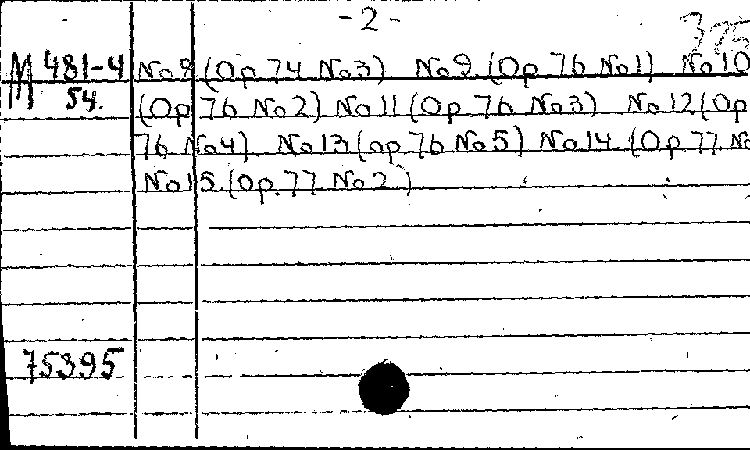 -2-
375
M 481-4 No 8 (Op. 74 No 3) No 9 (Op. 76 No 1) No 10
54. (Op 76 No 2) No 11 (Op. 76 No 3) No 12 (Op
76 No 4) No 13 (op 76 No 5) No 14 (Op. 77 No
No 15 (Op. 77 No 2)
75395